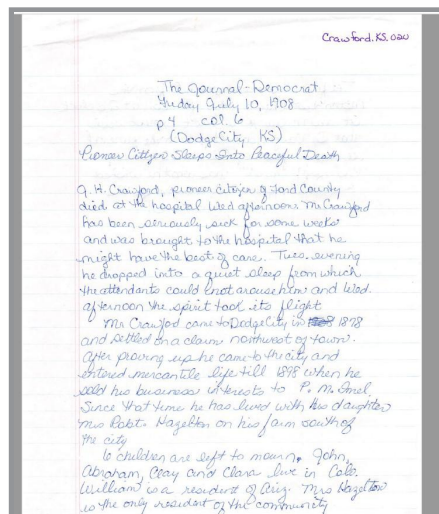 Crawford.KS.020
The Journal-Democrat
Friday July 10, 1908
p 4 col. 6
(Dodge City KS)
Pioneer Citizen Sleeps Into Peaceful Death
G. H. Crawford, pioneer citizen of Ford County
died at the hospital Wed afternoon. Mr Crawford
has been seriously sick for some weeks
and was brought to the hospital that he
might have the best of care. Tues. evening
he dropped into a quiet sleep from which
the attendants could not arouse him and Wed.
afternoon the spirit took its flight
Mr Crawford came to Dodge City in 1878
and settled on a claim northwest of town.
After proving up he came to the city and
entered mercantile life till 1898 when he
sold his business interests to P. M. Imel.
Since that time he has lived with his daughter
Mrs Robt. Hazelton on his farm south of
the city
6 children are left to mourn, John,
Abraham, Clay and Clara live in Colo.
William is a resident of Ariz. Mrs Hazelton
is the only resident of the community